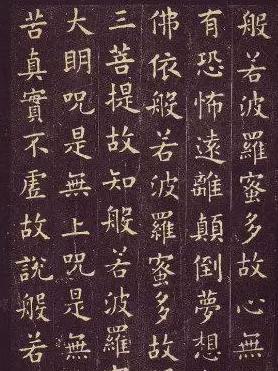 般若波羅蜜多故心無
有恐怖遠離顛倒夢想
佛依般若波羅蜜多故
三菩提故知般若波羅
大明咒是無上咒是無
苦真實不虛故說般若